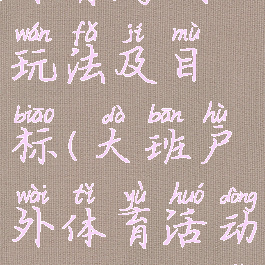 wán fǎ jí mù
玩法及目
biāo dà bān hù
标(大班户
wài tǐ yù huó dòng
外体育活动